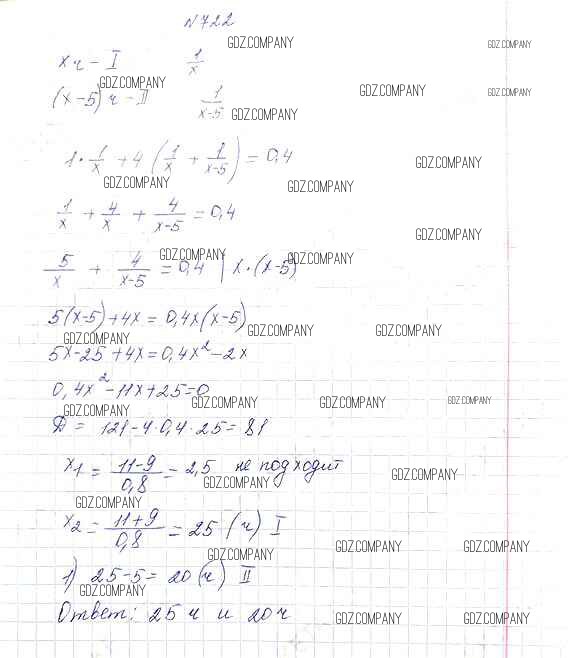 N722
GDZ.COMPANY GDZ.COMPANY
х ч – I 1/x
GDZ.COMPANY
(x-5) ч – II 1/(x-5)
GDZ.COMPANY GDZ.COMPANY
GDZ.COMPANY
1·1/x + 4(1/x + 1/(x-5)) = 0,4
GDZ.COMPANY
GDZ.COMPANY GDZ.COMPANY
1/x + 4/x + 4/(x-5) = 0,4
GDZ.COMPANY
GDZ.COMPANY GDZ.COMPANY
5/x + 4/(x-5) = 0,4 | x·(x-5)
5(x-5)+4x = 0,4x(x-5)
GDZ.COMPANY GDZ.COMPANY GDZ.COMPANY
5x-25+4x=0,4x²-2x
0,4x²-11x+25=0
GDZ.COMPANY GDZ.COMPANY GDZ.COMPANY GDZ.COMPANY
D = 121-4·0,4·25=81
x₁ = (11-9)/0,8 = 2,5 не подходит
GDZ.COMPANY GDZ.COMPANY
GDZ.COMPANY
x₂ = (11+9)/0,8 = 25 (ч) I
GDZ.COMPANY GDZ.COMPANY GDZ.COMPANY
1) 25-5= 20(ч) II
GDZ.COMPANY
Ответ: 25 ч и 20ч
GDZ.COMPANY GDZ.COMPANY